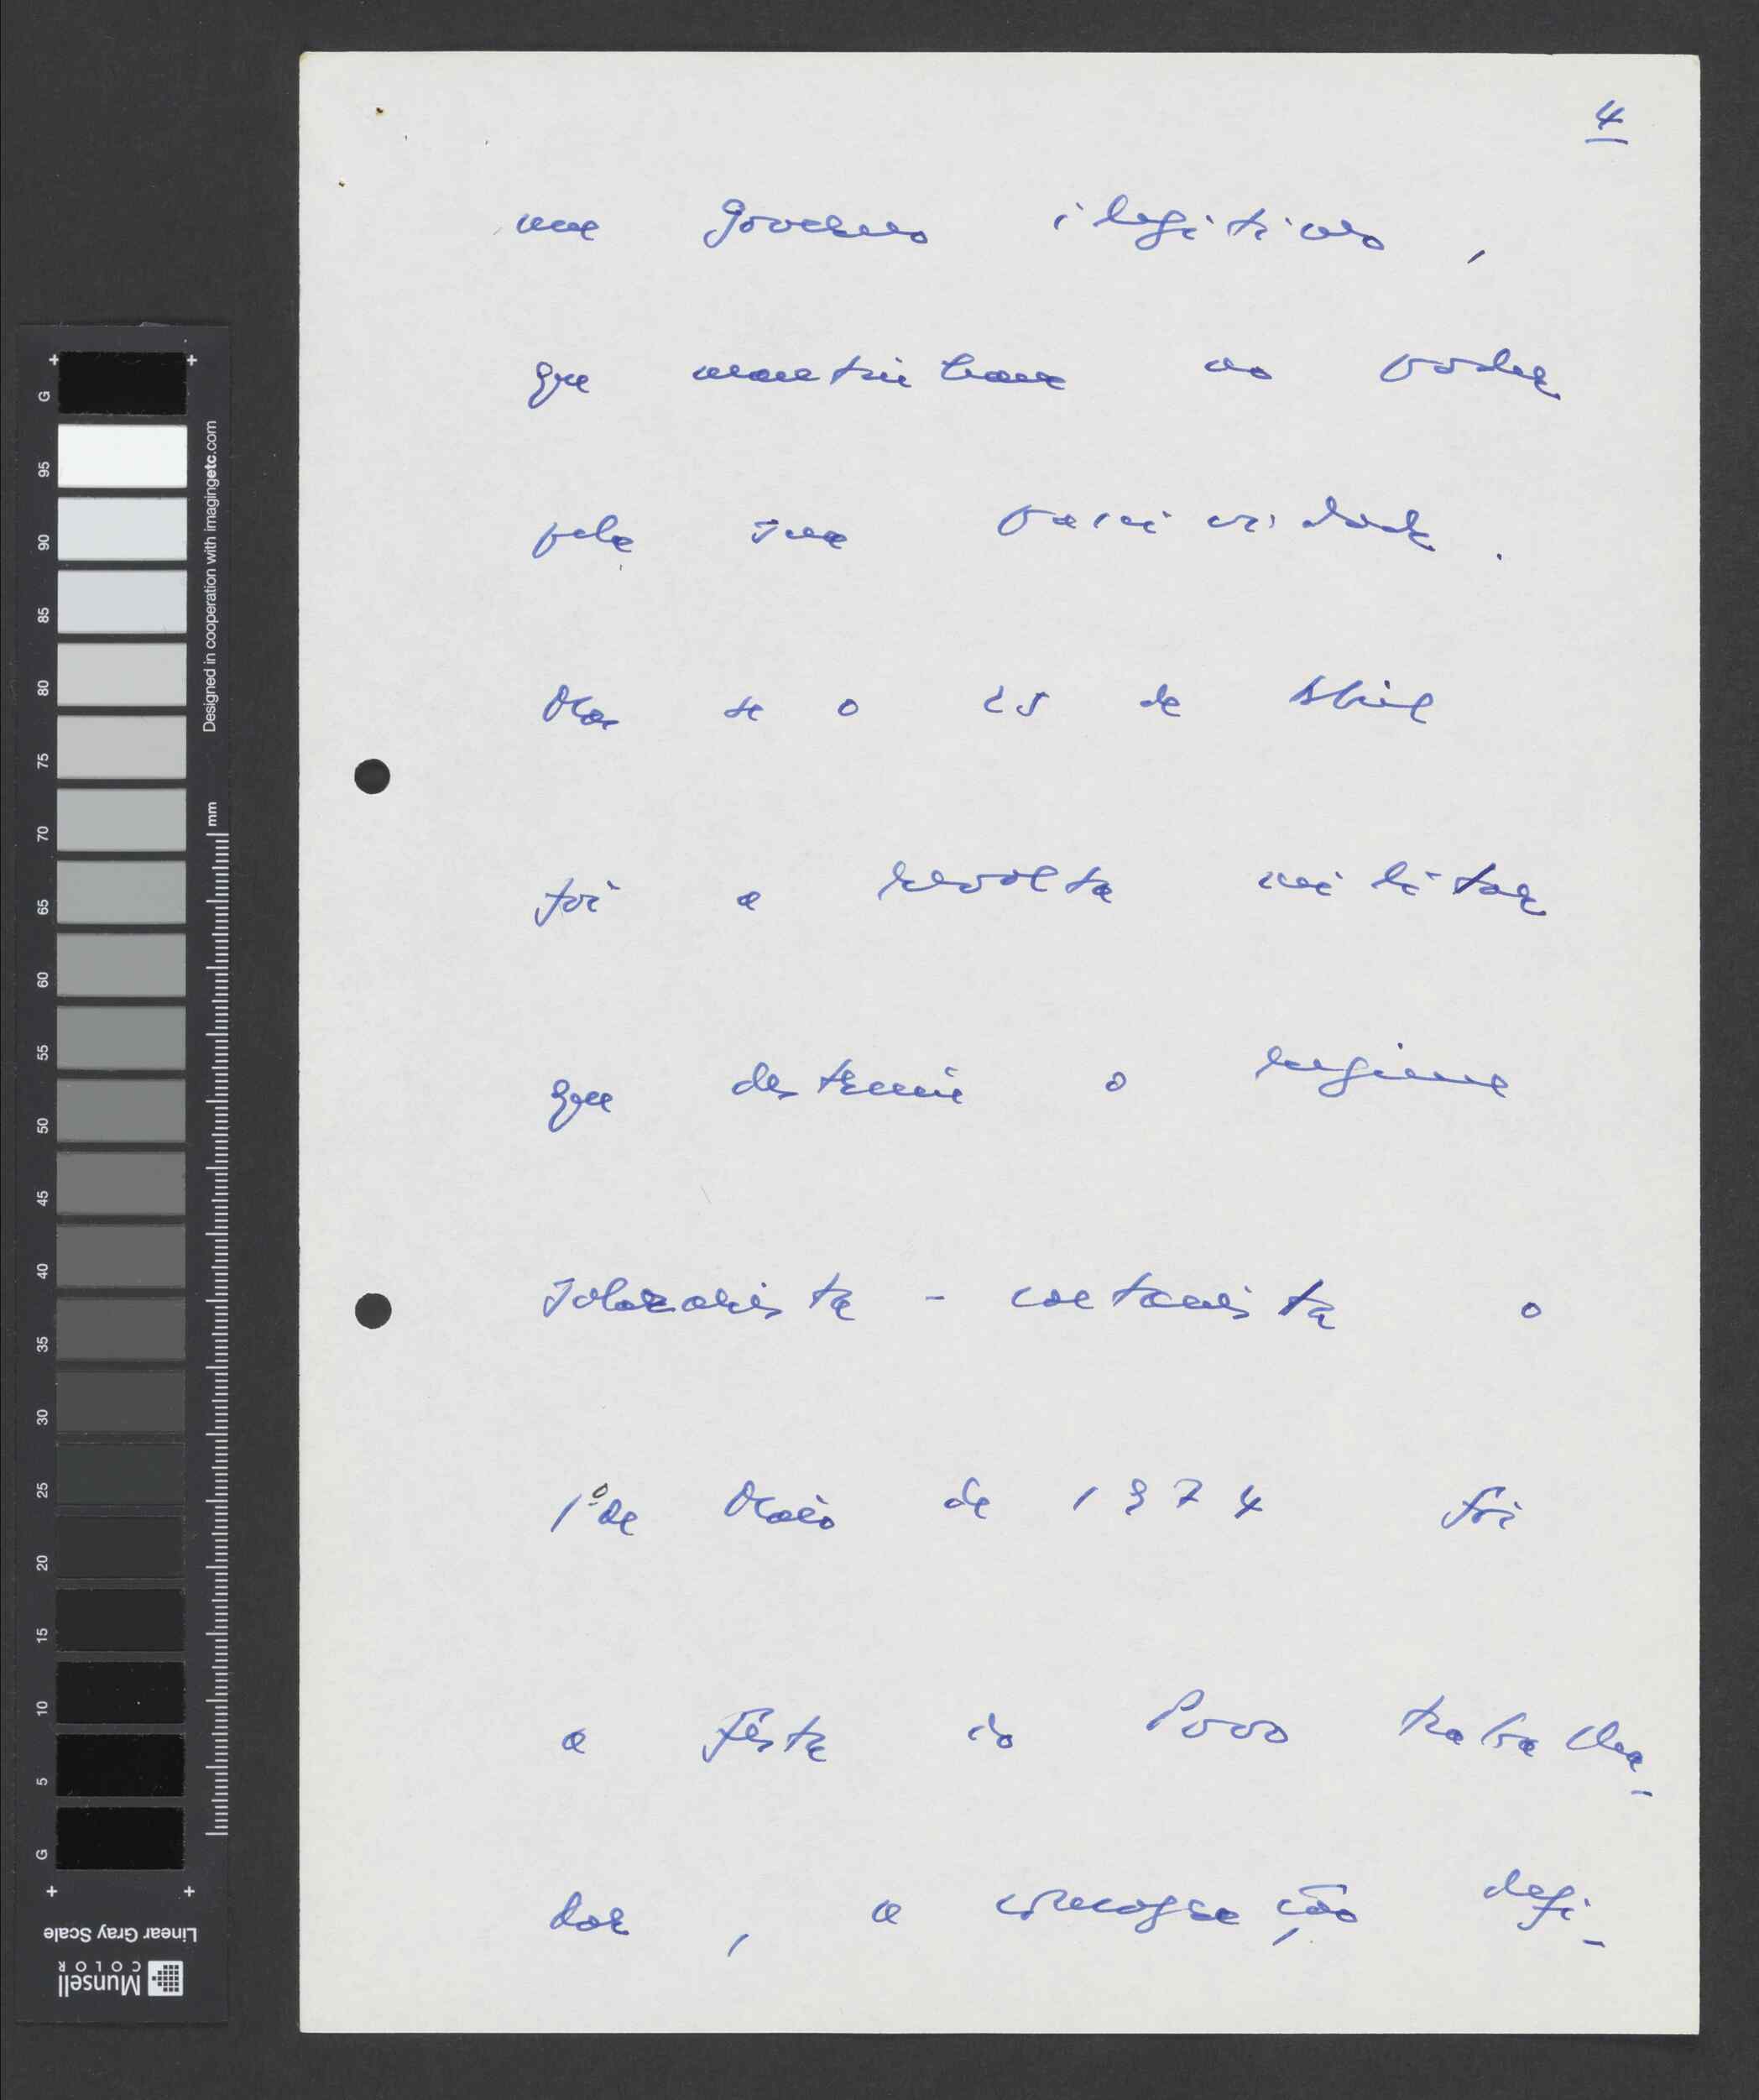 4
um Governo ilegítimo,
que mantinham no poder
pela sua passividade.
Mas se o 25 de Abril
foi a revolta militar
que destruiu o regime
salazarista - caetanista o
1º de Maio de 1974 foi
a Fésta do Povo trabalha-
dor, a consagração defi-
G
95
90
85
80
75
70
65
60
55
50
45
40
35
30
25
20
15
10
5
G
Designed in cooperation with imagingetc.com
mm
Linear Gray Scale
Munsell
COLOR